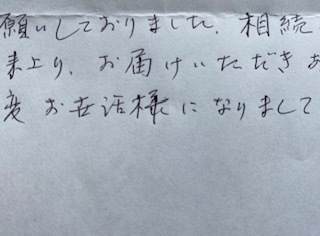 願いしておりました。相続
来上り、お届けいただきあ
変お世話様になりまして